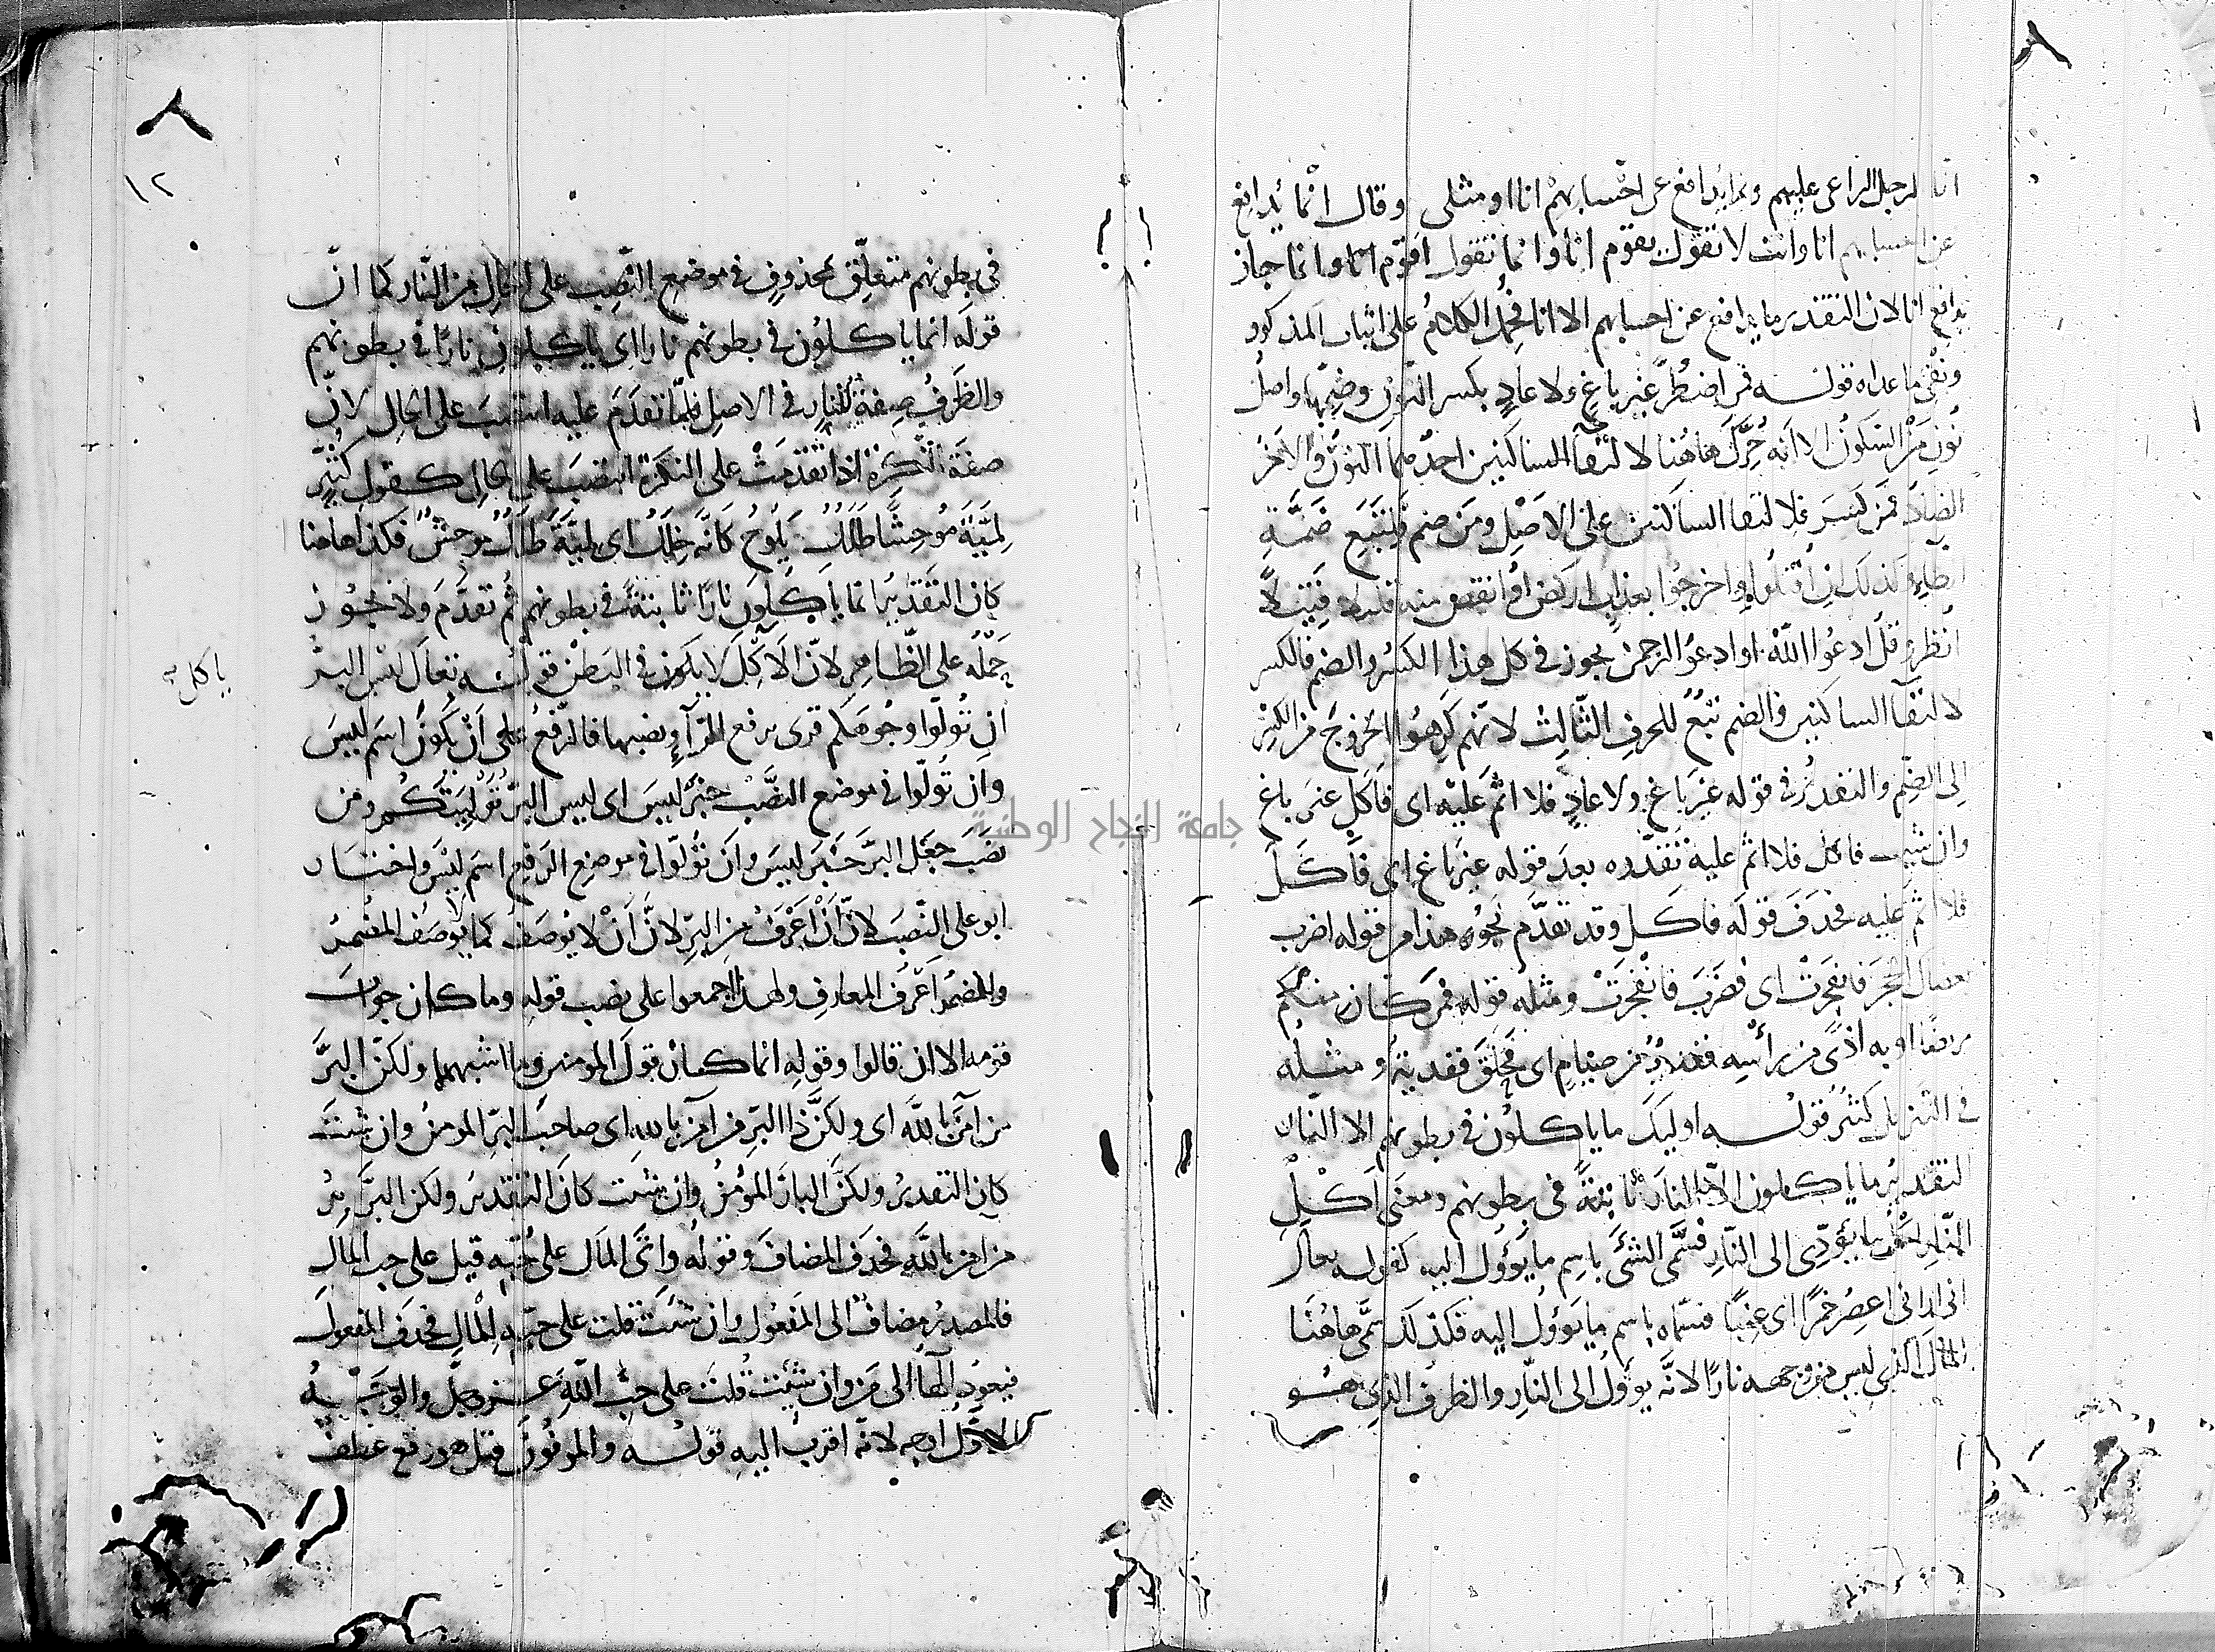 انا الرجل الراعى عليهم وانما يدافع عن احسابهم انا او مثلى وقال انما يدافع
عن احسابهم انا وانت لا تقول يقوم انا وانما تقول اقوم انا وانما جاز
يدافع انا لان التقدير ما يدافع عن احسابهم الا انا فحُمِل الكلامُ على اثبات المذكور
ونفى ما عداه قولـه فمن اضطُرَّ غيرَ باغٍ ولا عادٍ بكسر النون وضمّها واصلُ
نونِ مَنْ السّكونُ الا انّه حُرّك هاهُنا لالتقآ الساكنين احدهما النون والاخر
الضاد فمن كسر فلالتقا الساكنين على الاصل ومن ضم فلتتبع ضَمَّةِ
الطاءِ كذلك انِ اقتلُوا او اخرجوا بعذابٍ اركض او انقص منه قليلا فتيلاً
انظر وقل ادعُوا اللّهَ او ادعوُا الرحمن يجوز فى كل هذا الكسر والضم فالكسر
لالتقآ الساكنين والضم تبعٌ للحرفِ الثّالِثِ لانّهم كرهُوا الخروجَ من الكسر
الى الضمِّ والتقديرُ فى قوله غيرَ باغٍ ولا عادٍ فلا اثمَ عَليْه اى فاكل غيرَ باغ
وان شيت فاكل فلا اثم عليه تقدّره بعدَ قوله غيرَ باغ اى فاكل
فلا اثمَ عَليه فحذفَ قولَه فاكل وقد تقدّم نحوُ هذا من قوله اضرب
بعصاك الحَجَرَ فانفجرَتْ اى فضرَبَ فانفجَرتْ ومثله قوله فمن كان منكم
مريضًا او به اذًى من رأسِه ففديةٌ من صيامٍ اى فحلقَ ففديةٌ ومثلُه
فى التنزيل كثيرٌ قولـه اوليك ما ياكلُون فى بطونهم الا النار
التقديرُ ما ياكلون الا النارَ ثابتةً فى بطونهم ومعنى اكل
النّارِ اكل ما يؤدّى الى النّارِ فسمَّى الشئَ باسِم ما يَؤُول اليه كقوله تعالى
انى ارانى اعصِرُ خمرًا اى عِنبًا فسمّاه باسم ما يَؤُولُ اليه فكذلك سمَّى هاهُنَا
المالَ الذى ليس من وجهه نارًا لانّه يَؤُولُ الى النّارِ والظرف الذى هـو
٨
١٢
فى بطونهم متعلّق بمحذوفٍ فى موضعِ النّصبِ على الحالِ من النّار كما انّ
قولَه انما ياكلُون فى بطونهم نارا اى ياكلون نارًا فى بطونهم
والظرفُ صِفةٌ للنارِ فى الاصلِ فلمّا تقدَّمَ عليه انتصبَ على الحالِ لانّ
صفةَ النّكرة اذا تقدّمَتْ على النكرة انتصبَ على الحال كقول كثيّر
لميّةَ موُحشًا طَلَلُ يَلوُحُ كَانّه خِلَلُ اى لميّةَ طَللٌ موحشٌ فكذا هاهنا
كان التقديرُ انما ياكلون نارًا ثابتةً فى بطونهم ثُم تقدَّمَ ولا يجوز
حَمْلُه على الظّاهرِ لانّ الآكِلَ لا يكون فى البَطْن قولـه تعالى ليس البر
ياكل
ان تُولّوا وجُوهكم قرى برفع الرّآءِ ونصبِها فالرّفعُ على اَنْ يكُونَ اسمَ ليسَ
وان تُولّوا فى موضع النصبِ خَبَرُ ليسَ اى ليس البرّ تَوْلِيَتكُم ومن
نصَبَ جعَل البرَّ خبرَ ليسَ وان تُولّوا فى موضع الرَفعِ اسمَ ليسَ واختار
ابو على النّصبَ لانّ اَنْ اَعْرَفُ من البرِّ لانّ اَنْ لا يُوصَفُ كما لا يُوصَف المضمرُ
والمضمرُ اعرفُ المعارفِ ولهذا اجمعوا على نصب قولِه وما كان جواب
قومه الا ان قالوا وقولِه انما كانَ قولَ المومنين وما اشبههما ولكنّ البرَّ
من آمن باللّه اى ولكنَّ ذا البرّ من آمن باللهِ اى صاحبَ البّرِ المومنُ وان شئتَ
كان التقديرُ ولكنَّ البارَّ المؤمنُ وان شئت كانَ التقديرُ ولكن البرَّ بِرُّ
من امن باللّه فحذفَ المضافَ وقولُه واتَى المَال على حُبّه قيل على حبِ المالِ
فالمصدرُ مضافٌ الى المفعول وان شئتَ قلت على حبّه المالَ فحذفَ المفعولَ
فيعودُ الهآُ الى مَن وان شئت قلتَ على حبِّ اللّهِ عـز وجلّ والوجْـهُ
الاوّل اوجه لانّه اقربُ اليهِ قولُـه والموفُونَ قيل هو رفع عطف